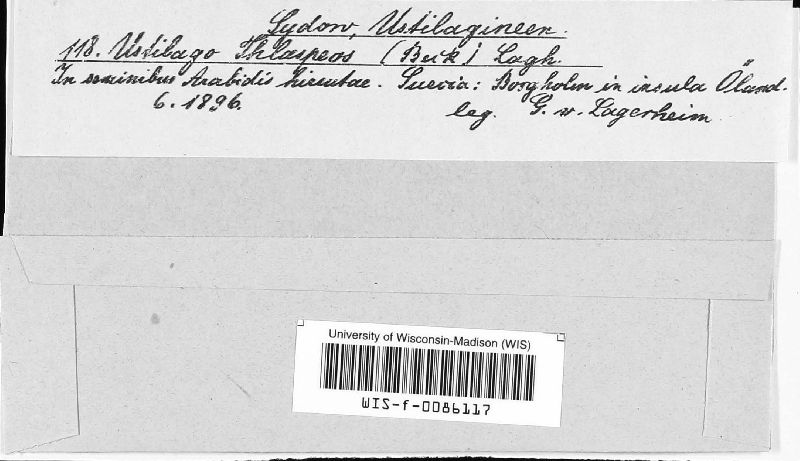 Sydow, Ustilagineen.
118. Ustilago Thlaspeos (Beck) Lagh.
In seminibus Arabidis hirsutae. Suecia: Borgholm in insula Öland.
6. 1896. leg. G. v. Lagerheim
University of Wisconsin-Madison (WIS)
WIS-f-0086117